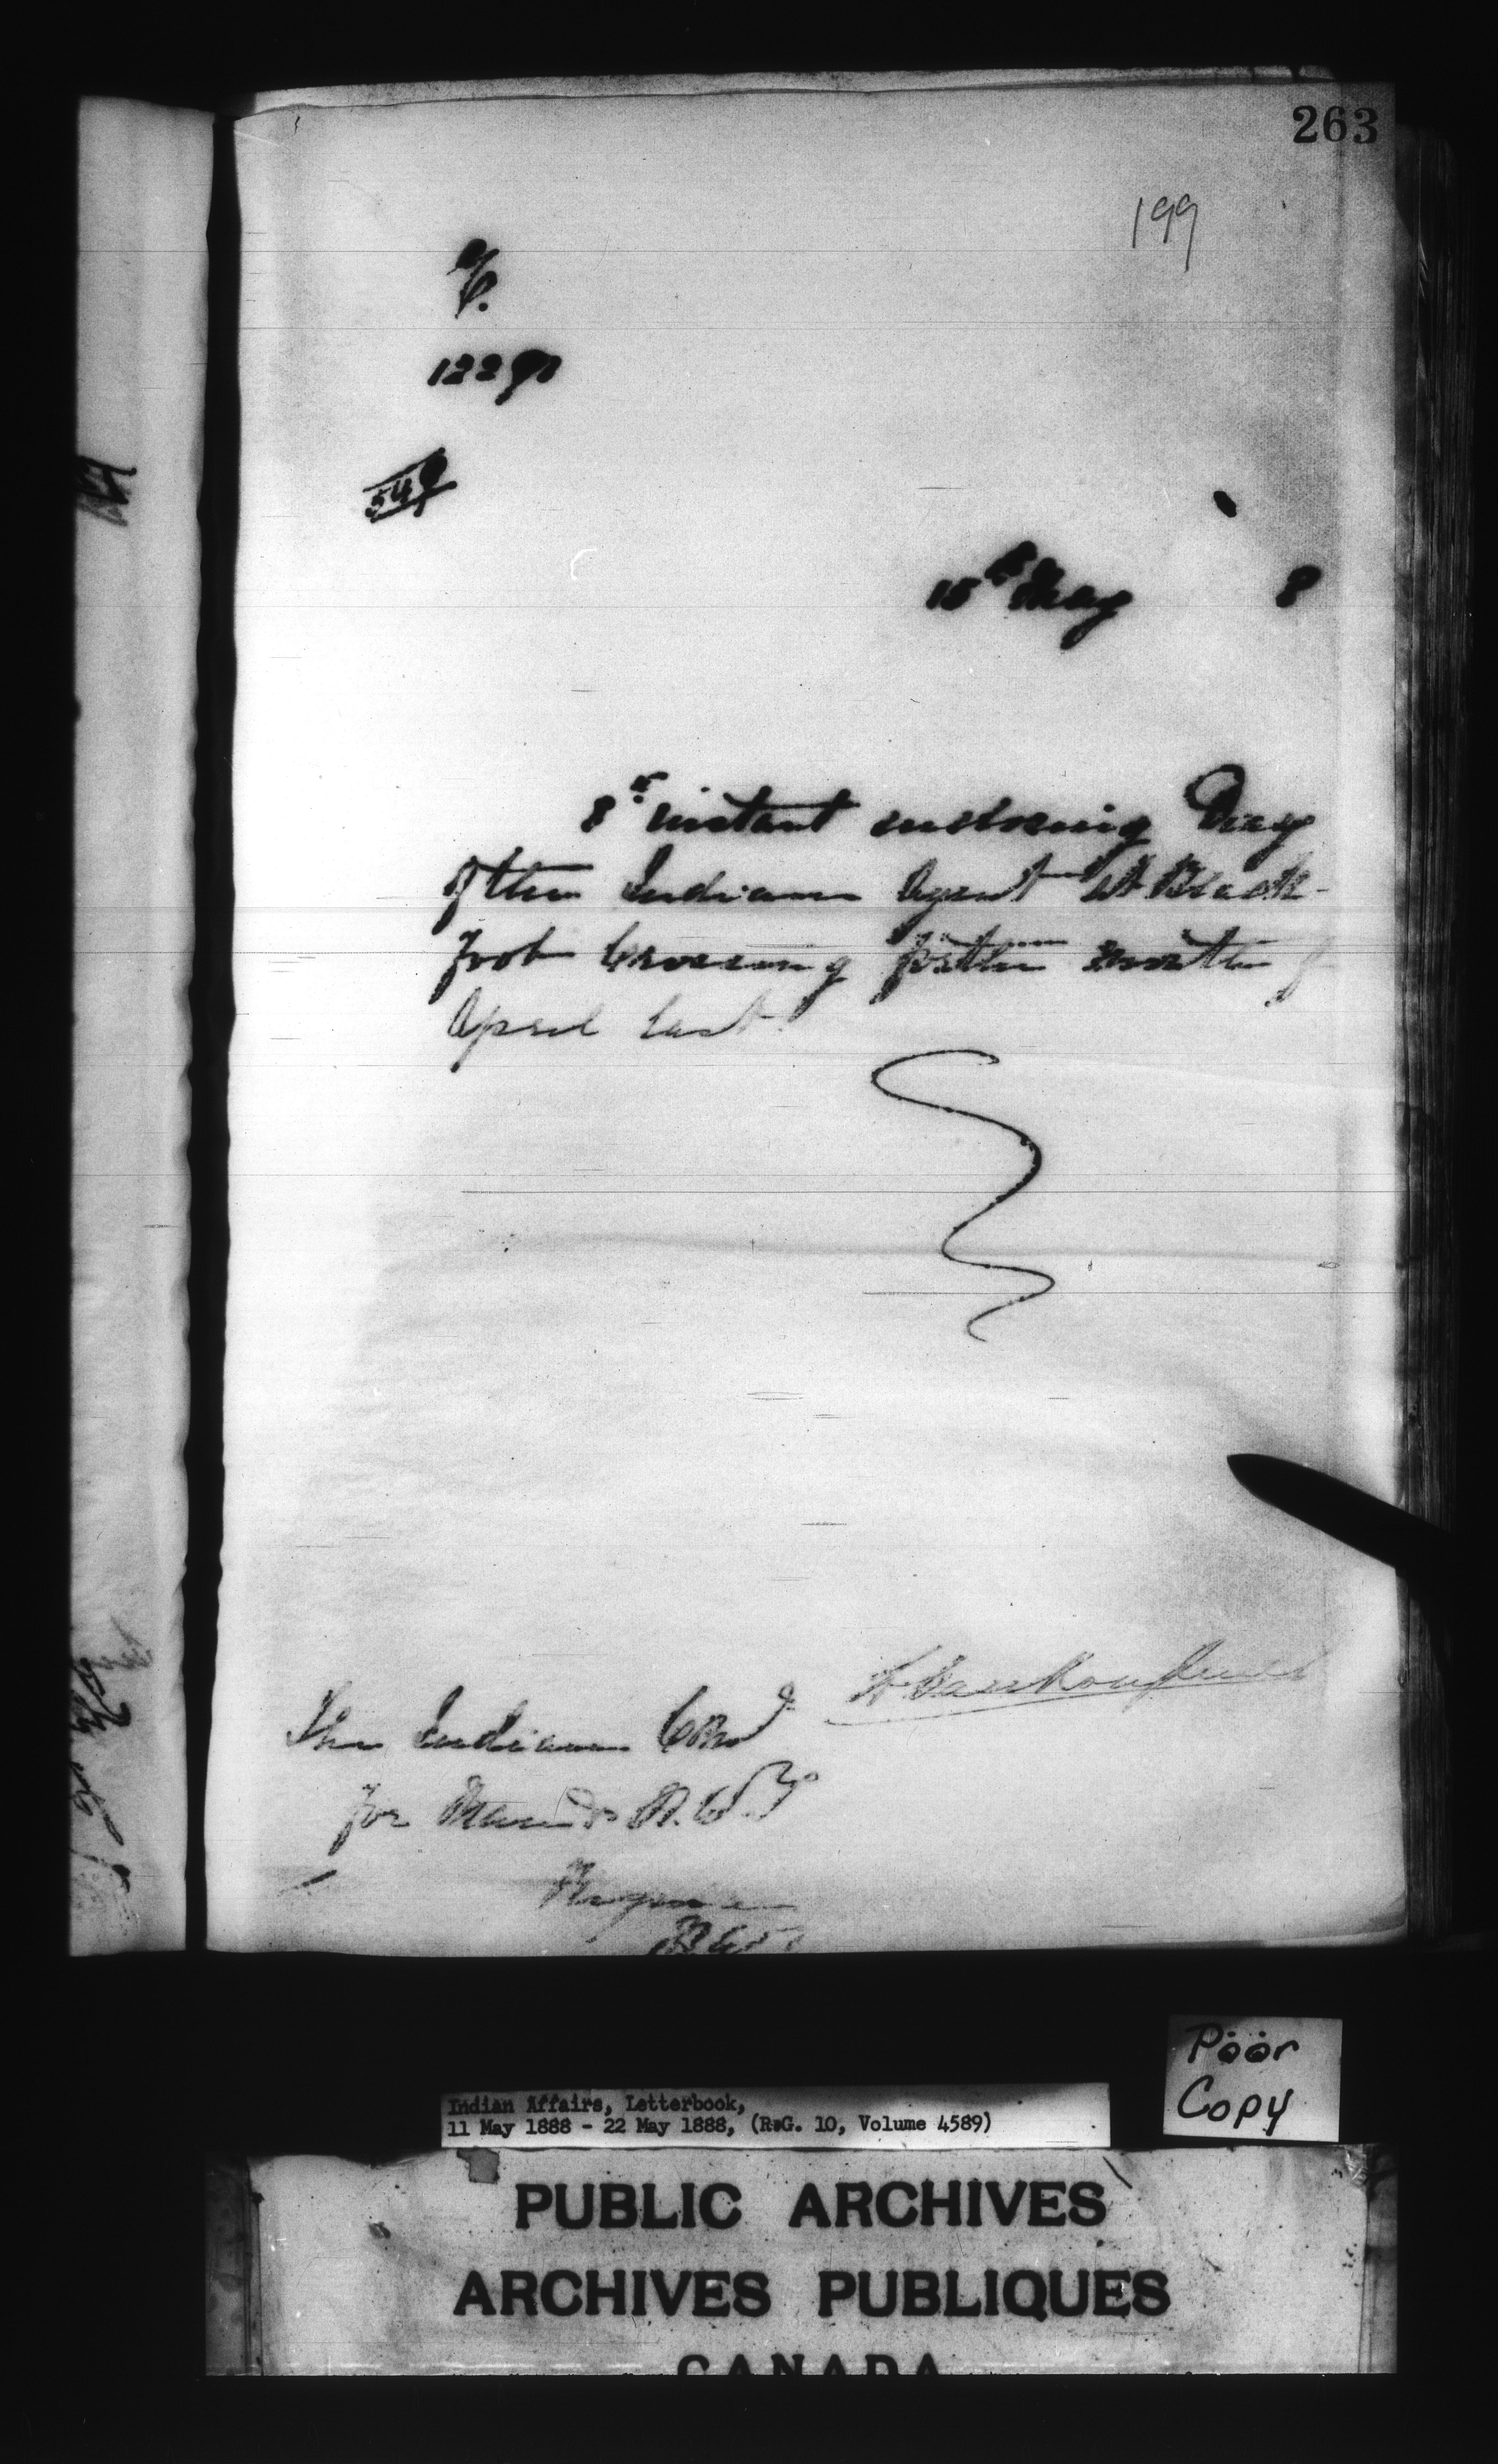 263
199
12290
549
15th May 8
8th instant enclosing Diary
of the Indian Agent at Black-
foot Crossing for the month of
April last.
L. Vankoughnet
The Indian Comr
for Man & N.W.T.
Regina
Poor
Copy
Indian Affairs, Letterbook,
11 May 1888 - 22 May 1888, (R.G. 10, Volume 4589)
PUBLIC ARCHIVES
ARCHIVES PUBLIQUES
CANADA